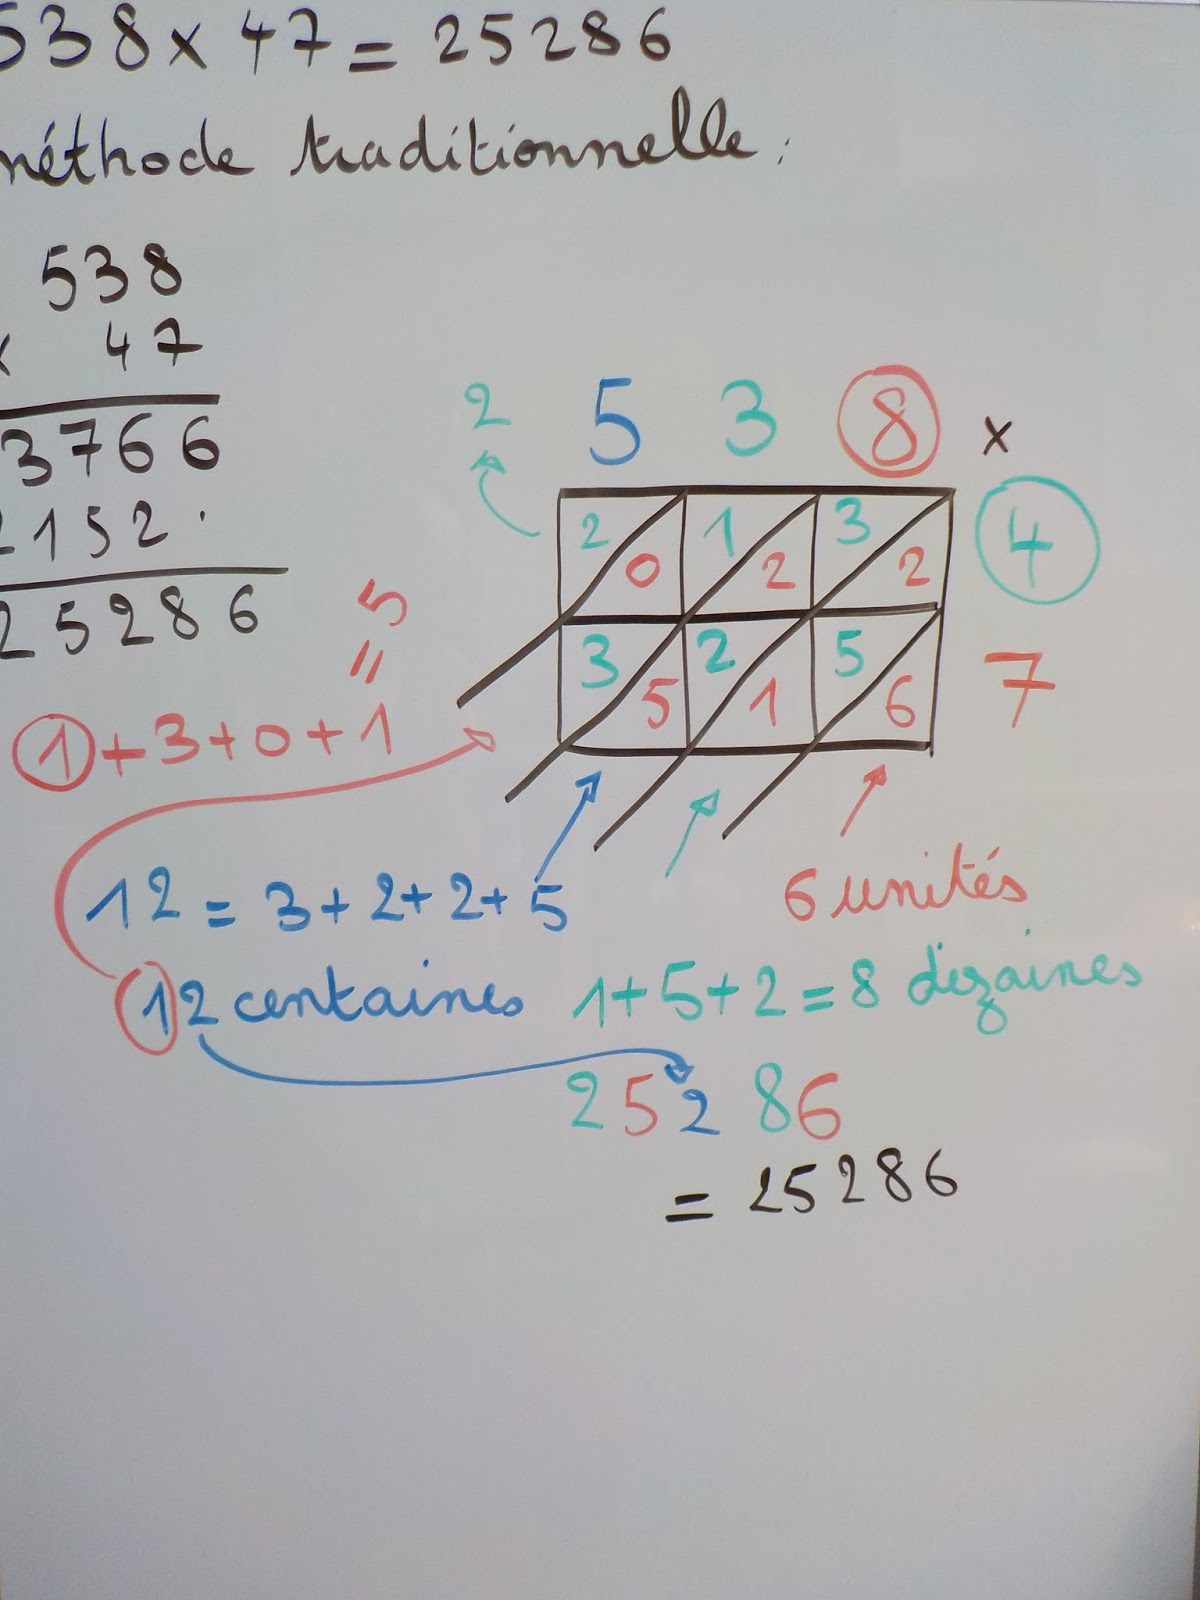 538 x 47 = 25286
méthode traditionnelle :
538
x 47
3766
2152.
25286
2 5 3 8 x
2 0 1 2 3 2 4
3 5 2 1 5 6 7
1+3+0+1 = 5
12 = 3+2+2+5
6 unités
12 centaines
1+5+2=8 dizaines
25286
= 25286